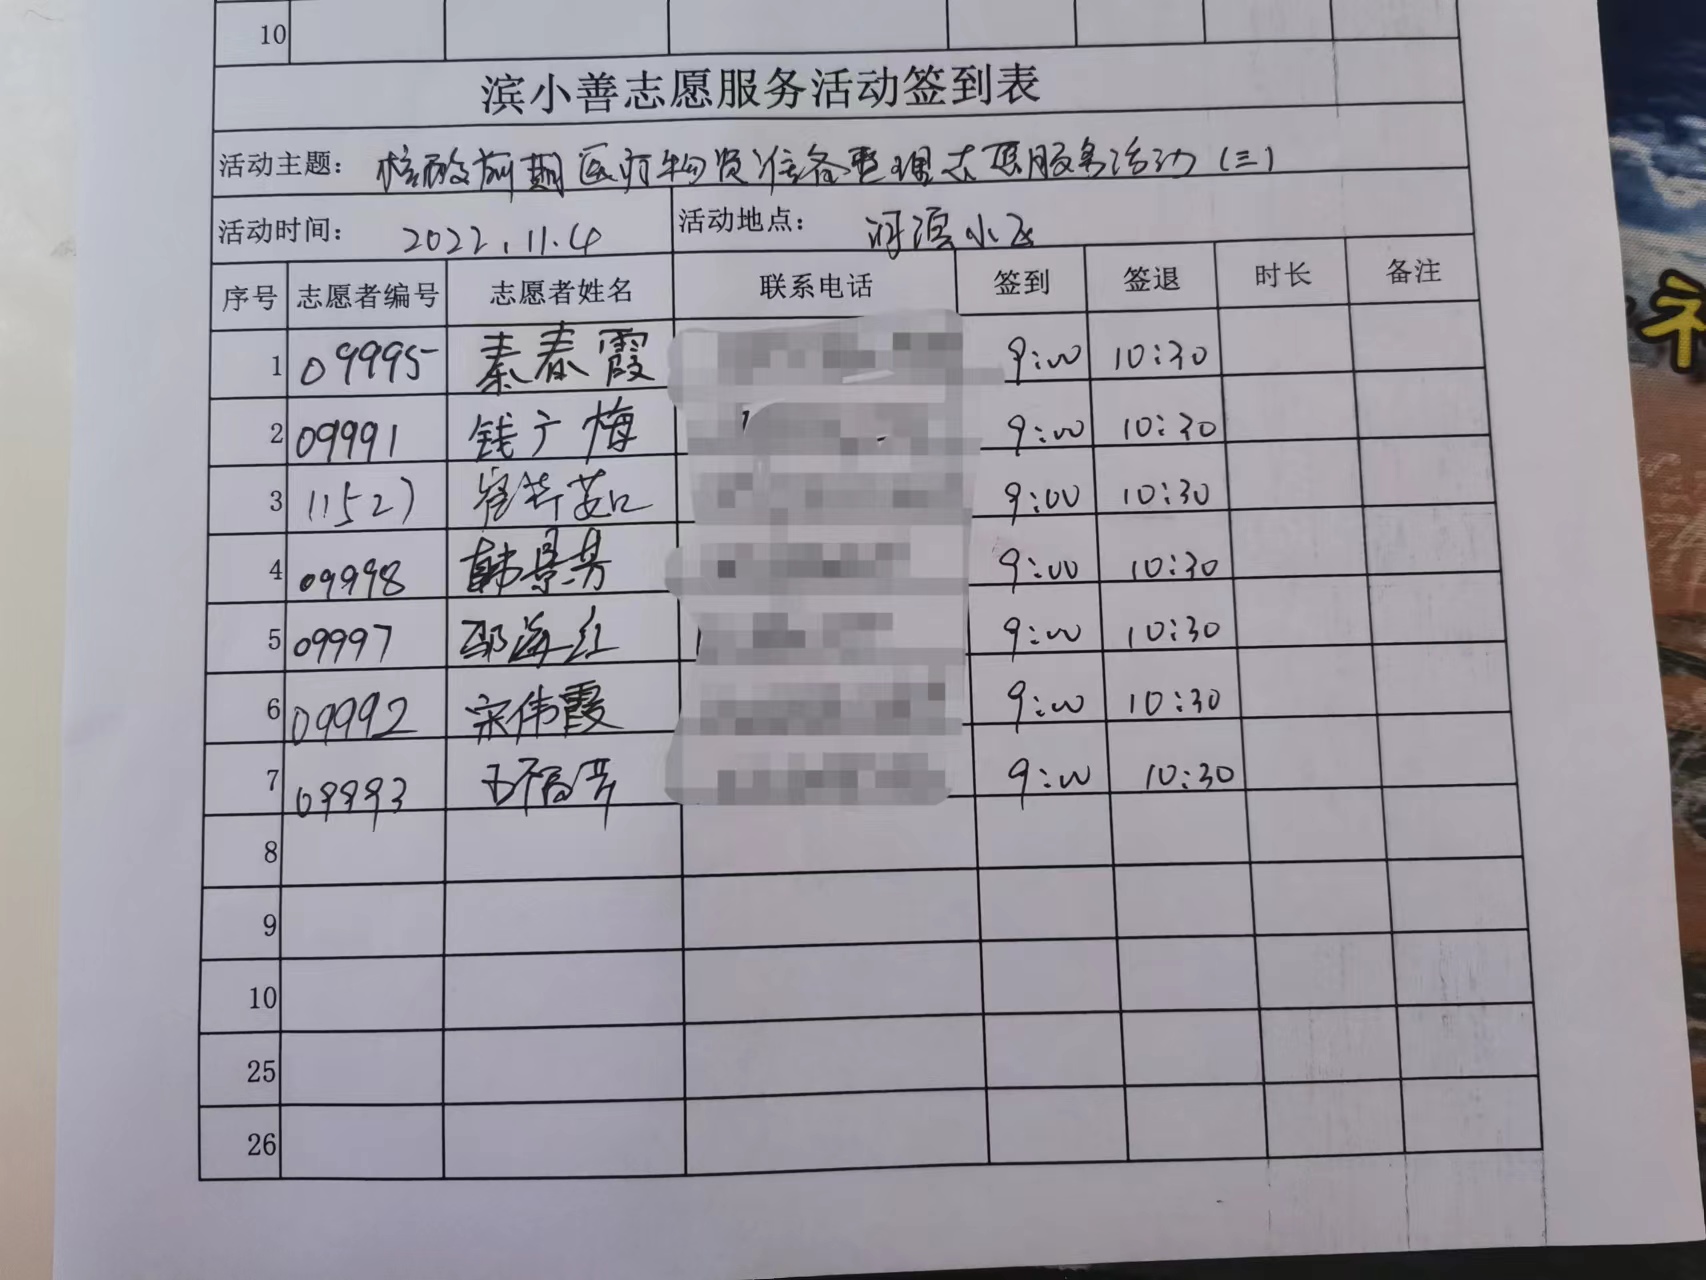 10
滨小善志愿服务活动签到表
活动主题: 核酸前期医疗物资准备整理志愿服务活动(三)
活动时间: 2022.11.4 活动地点: 河滨小区
序号 志愿者编号 志愿者姓名 联系电话 签到 签退 时长 备注
1 09995 秦春霞 9:00 10:30
2 09991 钱广梅 9:00 10:30
3 11527 9:00 10:30
4 09998 韩景芳 9:00 10:30
5 09997 邵海红 9:00 10:30
6 09992 宋伟霞 9:00 10:30
7 09993 9:00 10:30
8
9
10
25
26